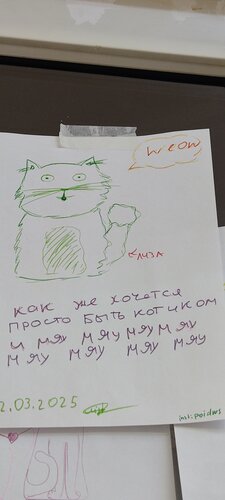 weow
ЛИЗА
как же хочется
просто быть котиком
и мяу мяу мяу мяу
мяу мяу мяу мяу
2.03.2025